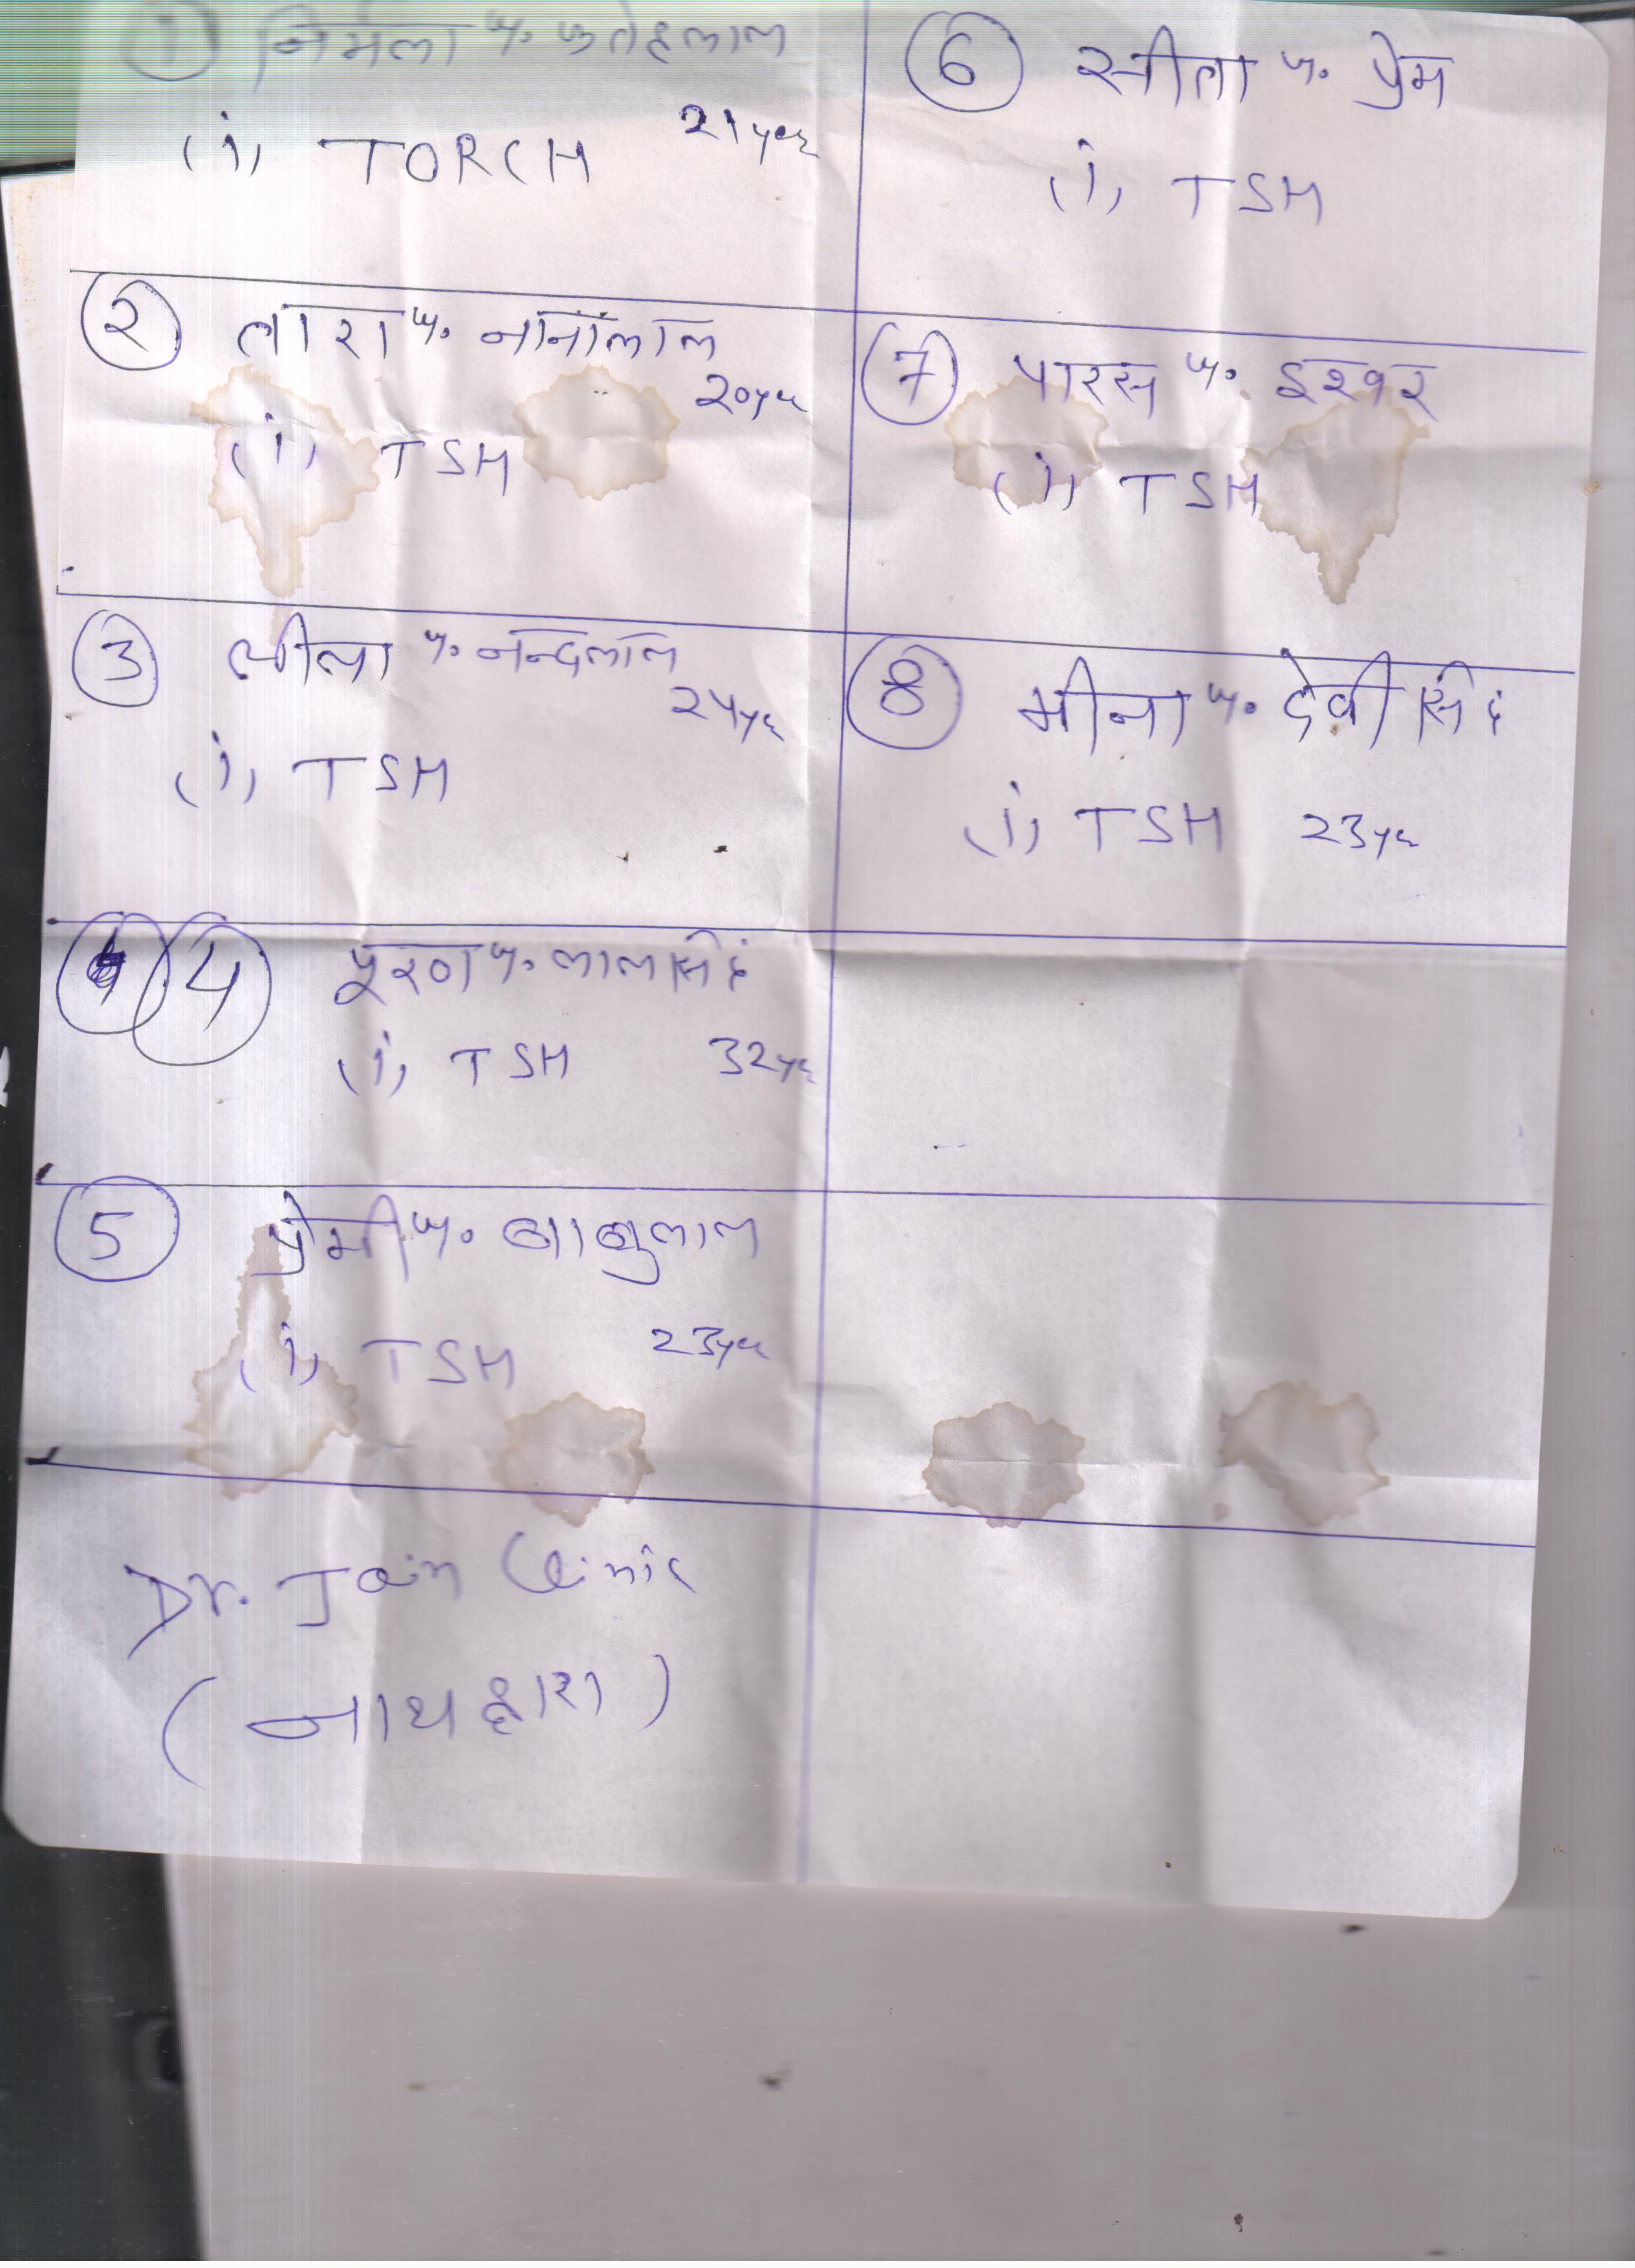 ① निर्मला प. फतेहलाल
(i) TORCH 21 year
② तारा प. नानालाल
20yr
(i) TSH
③ लीला प. नन्दलाल
24yr
(i) TSH
④ पुरण प. लालसिंह
(i) TSH 32yr
⑤ प्रेमी प. बाबुलाल
(i) TSH 23yr
Dr. Jain Clinic
(नाथद्वारा)
⑥ सीता प. प्रेम
(i) TSH
⑦ पारस प. इश्वर
(i) TSH
⑧ मीना प. देवी सिंह
(i) TSH 23yr